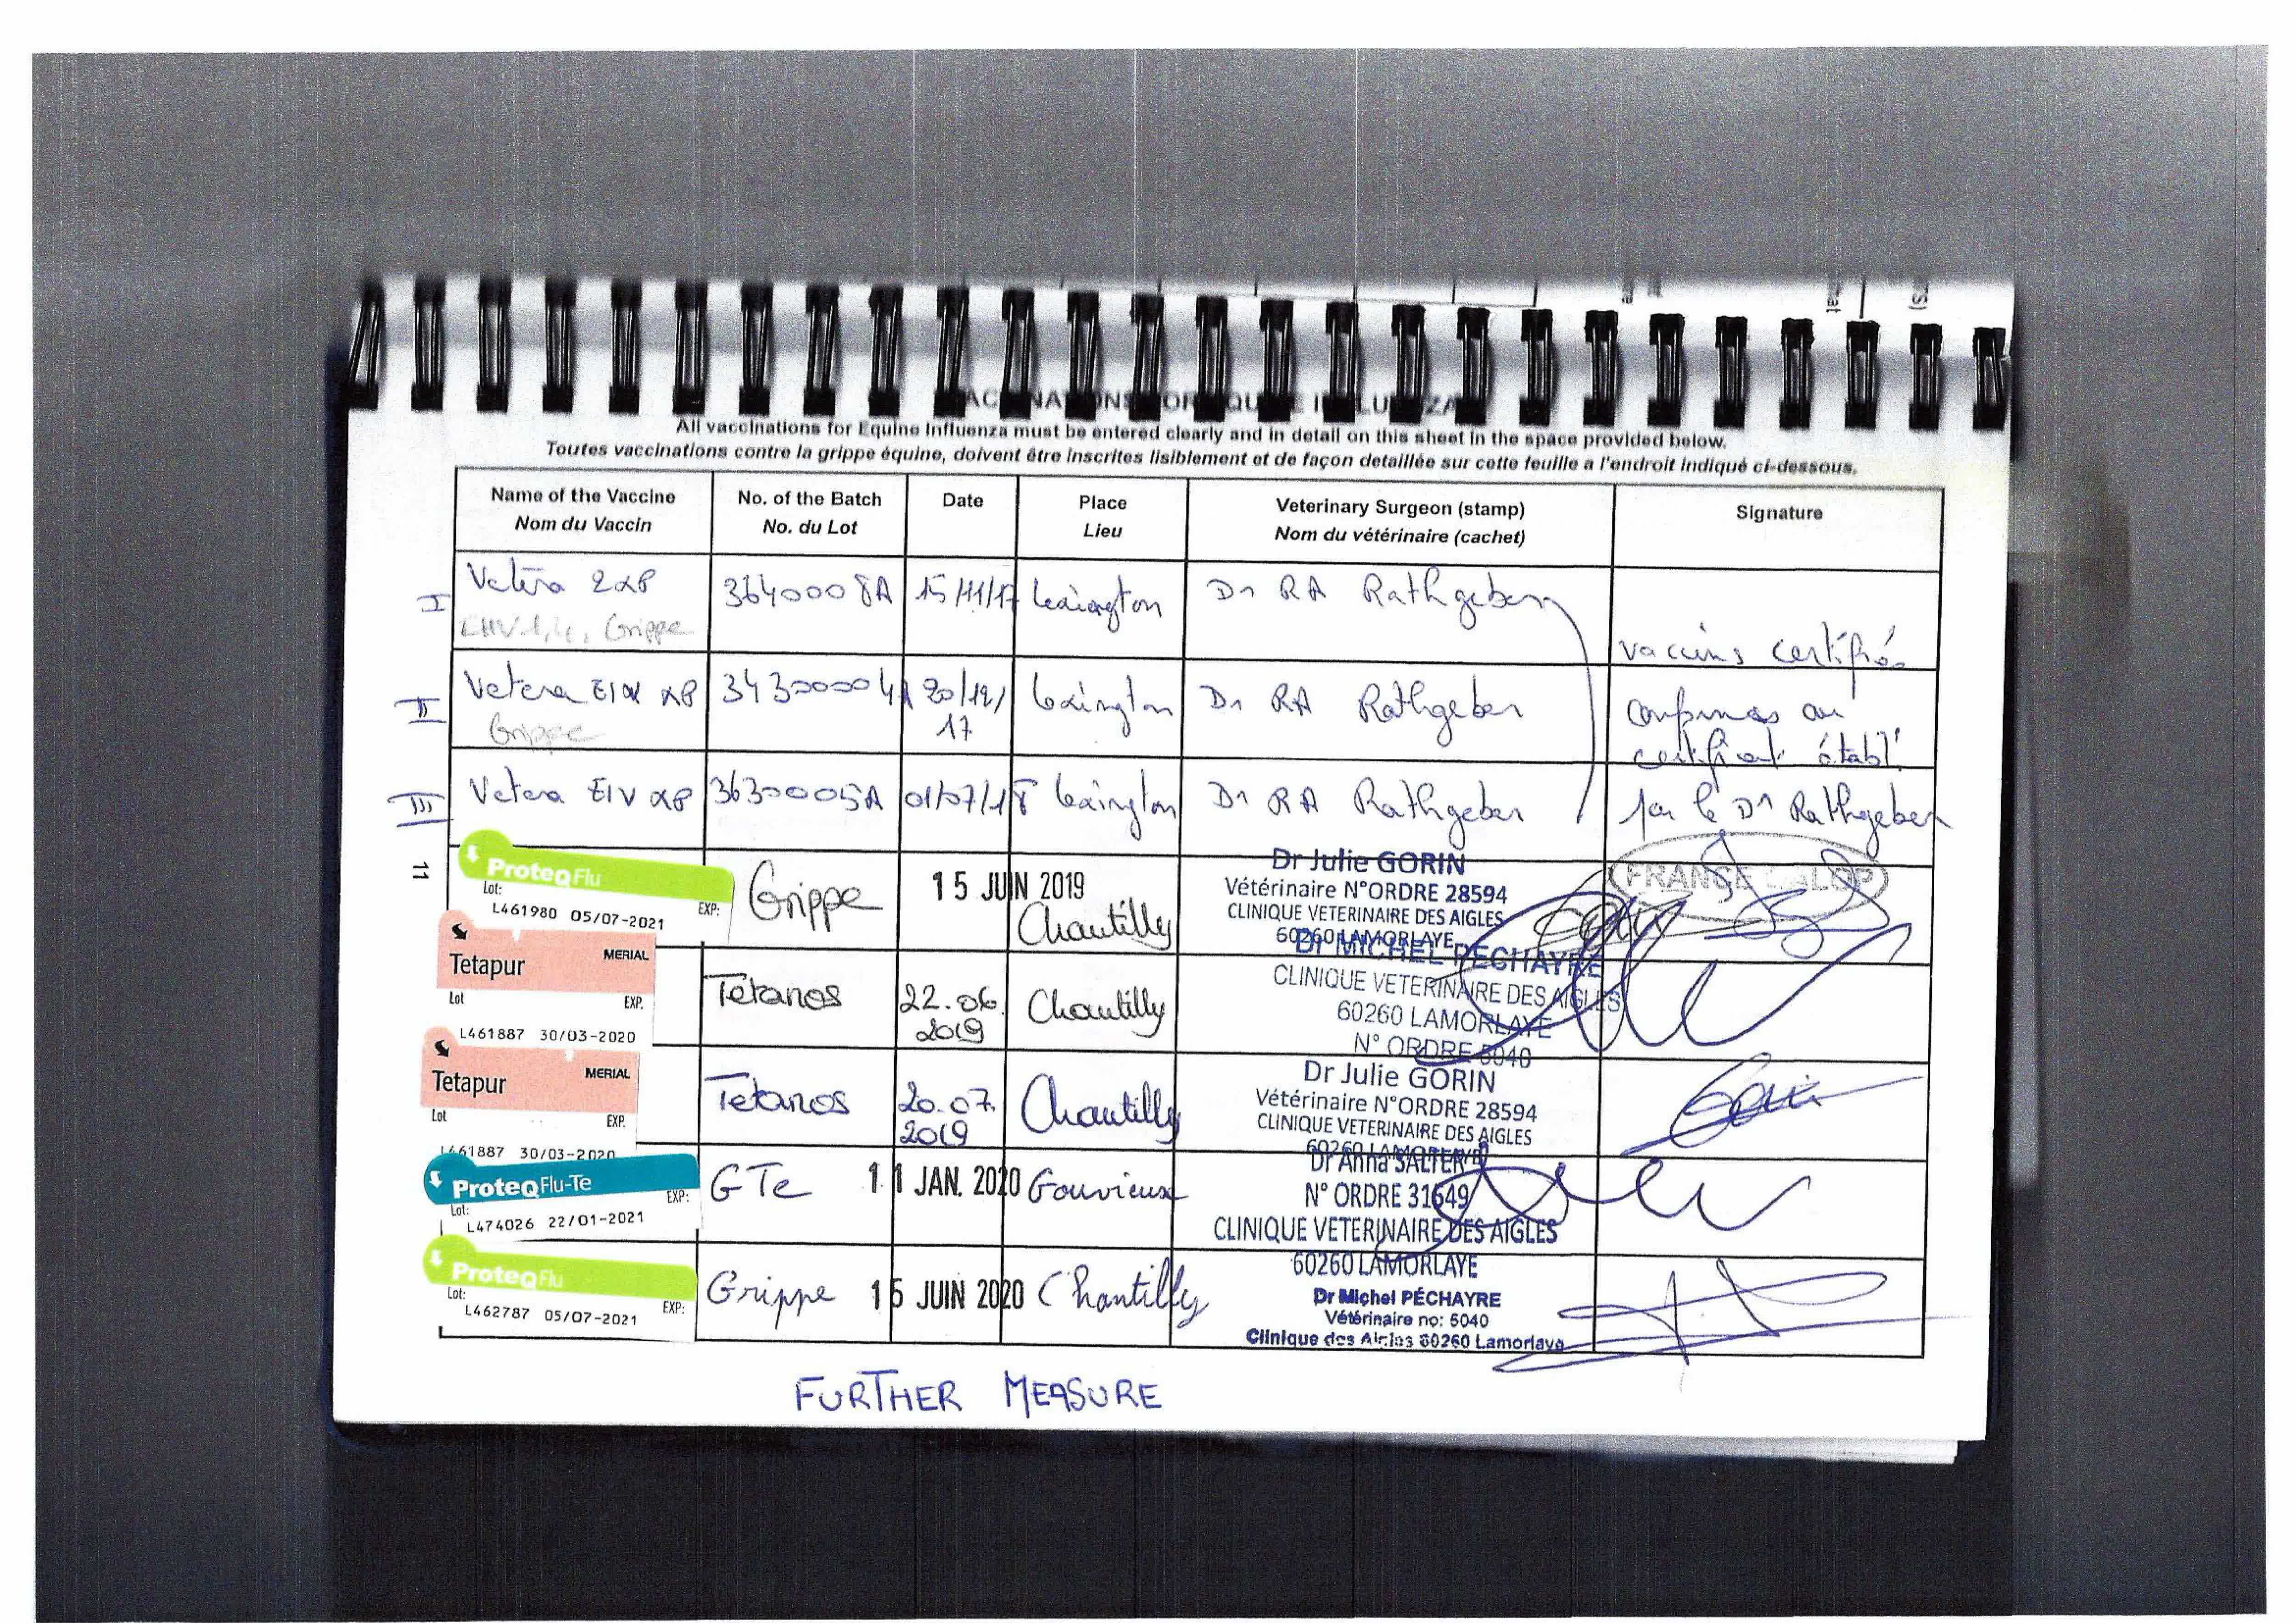 VACCINATIONS FOR EQUINE INFLUENZA
All vaccinations for Equine Influenza must be entered clearly and in detail on this sheet in the space provided below.
Toutes vaccinations contre la grippe équine, doivent être inscrites lisiblement et de façon detaillée sur cette feuille a l'endroit indiqué ci-dessous.
Name of the Vaccine No. of the Batch Date Place Veterinary Surgeon (stamp) Signature
Nom du Vaccin No. du Lot Lieu Nom du vétérinaire (cachet)
I Vetera 2xP 36400008A 15/11/17 Lexington Dr RA Rathgeber
EHV1,4, Grippe
vaccins certifiés
II Vetera EIV xP 34300004A 20/12/17 Lexington Dr RA Rathgeber
Grippe
conformes au
certificat établi
III Vetera EIV xP 36300005A 01/07/18 Lexington Dr RA Rathgeber par le Dr Rathgeber
11
FRANCE GALOP
ProteqFlu Grippe 15 JUIN 2019 Chantilly
Lot: EXP:
L461980 05/07-2021
Dr Julie GORIN
Vétérinaire N°ORDRE 28594
CLINIQUE VETERINAIRE DES AIGLES
60260 LAMORLAYE
Tetapur MERIAL Tétanos 22.06.2019 Chantilly
Lot EXP.
L461887 30/03-2020
Dr MICHEL PECHAYRE
CLINIQUE VETERINAIRE DES AIGLES
60260 LAMORLAYE
N° ORDRE 5040
Tetapur MERIAL Tetanos 20.07.2019 Chantilly
Lot EXP.
L461887 30/03-2020
Dr Julie GORIN
Vétérinaire N°ORDRE 28594
CLINIQUE VETERINAIRE DES AIGLES
60260 LAMORLAYE
ProteqFlu-Te GTe 11 JAN. 2020 Gouvieux
Lot: EXP:
L474026 22/01-2021
Dr Anna SALTER
N° ORDRE 31649
CLINIQUE VETERINAIRE DES AIGLES
60260 LAMORLAYE
ProteqFlu Grippe 15 JUIN 2020 Chantilly
Lot: EXP:
L462787 05/07-2021
Dr Michel PÉCHAYRE
Vétérinaire no: 5040
Clinique des Aigles 60260 Lamorlaye
FURTHER MEASURE